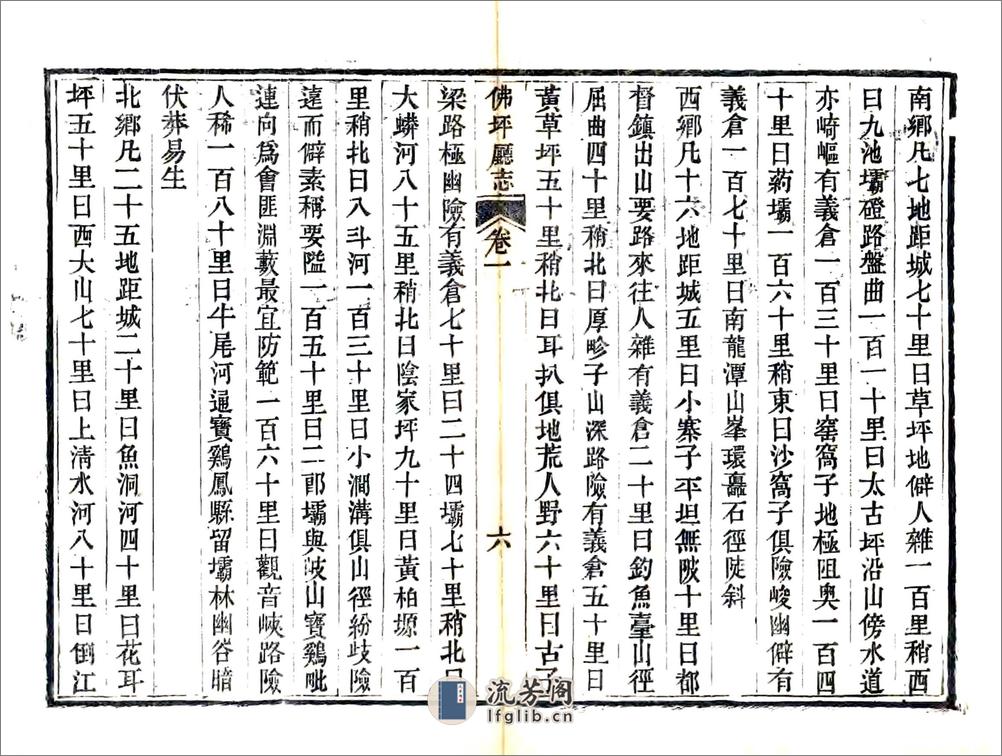 南鄉凡七地距城七十里曰草坪地僻人雜一百里稍西
曰九池壩磴路盤曲一百一十里曰太古坪沿山傍水道
亦崎嶇有義倉一百三十里曰窑窩子地極阻奥一百四
十里曰药壩一百六十里稍東曰沙窩子俱險峻幽僻有
義倉一百七十里曰南龍潭山峯環矗石徑陡斜
西鄉凡十六地距城五里曰小寨子平坦無陂十里曰都
督鎮出山要路來往人雜有義倉二十里曰釣魚臺山徑
屈曲四十里稍北曰厚畛子山深路險有義倉五十里曰
黃草坪五十里稍北曰耳扒俱地荒人野六十里曰古子
佛坪廳志 卷一 六
梁路極幽險有義倉七十里曰二十四壩七十里稍北曰
大蟒河八十五里稍北曰陰家坪九十里曰黃柏塬一百
里稍北曰八斗河一百三十里曰小澗溝俱山徑紛歧險
遠而僻素稱要隘一百五十里曰二郎壩與岐山寶鷄毗
連向爲會匪淵藪最宜防範一百六十里曰觀音峽路險
人稀一百八十里曰牛尾河逼寶鷄鳳縣留壩林幽谷暗
伏莽易生
北鄉凡二十五地距城二十里曰魚洞河四十里曰花耳
坪五十里曰西大山七十里曰上清水河八十里曰倒江
流芳阁
lfglib.cn